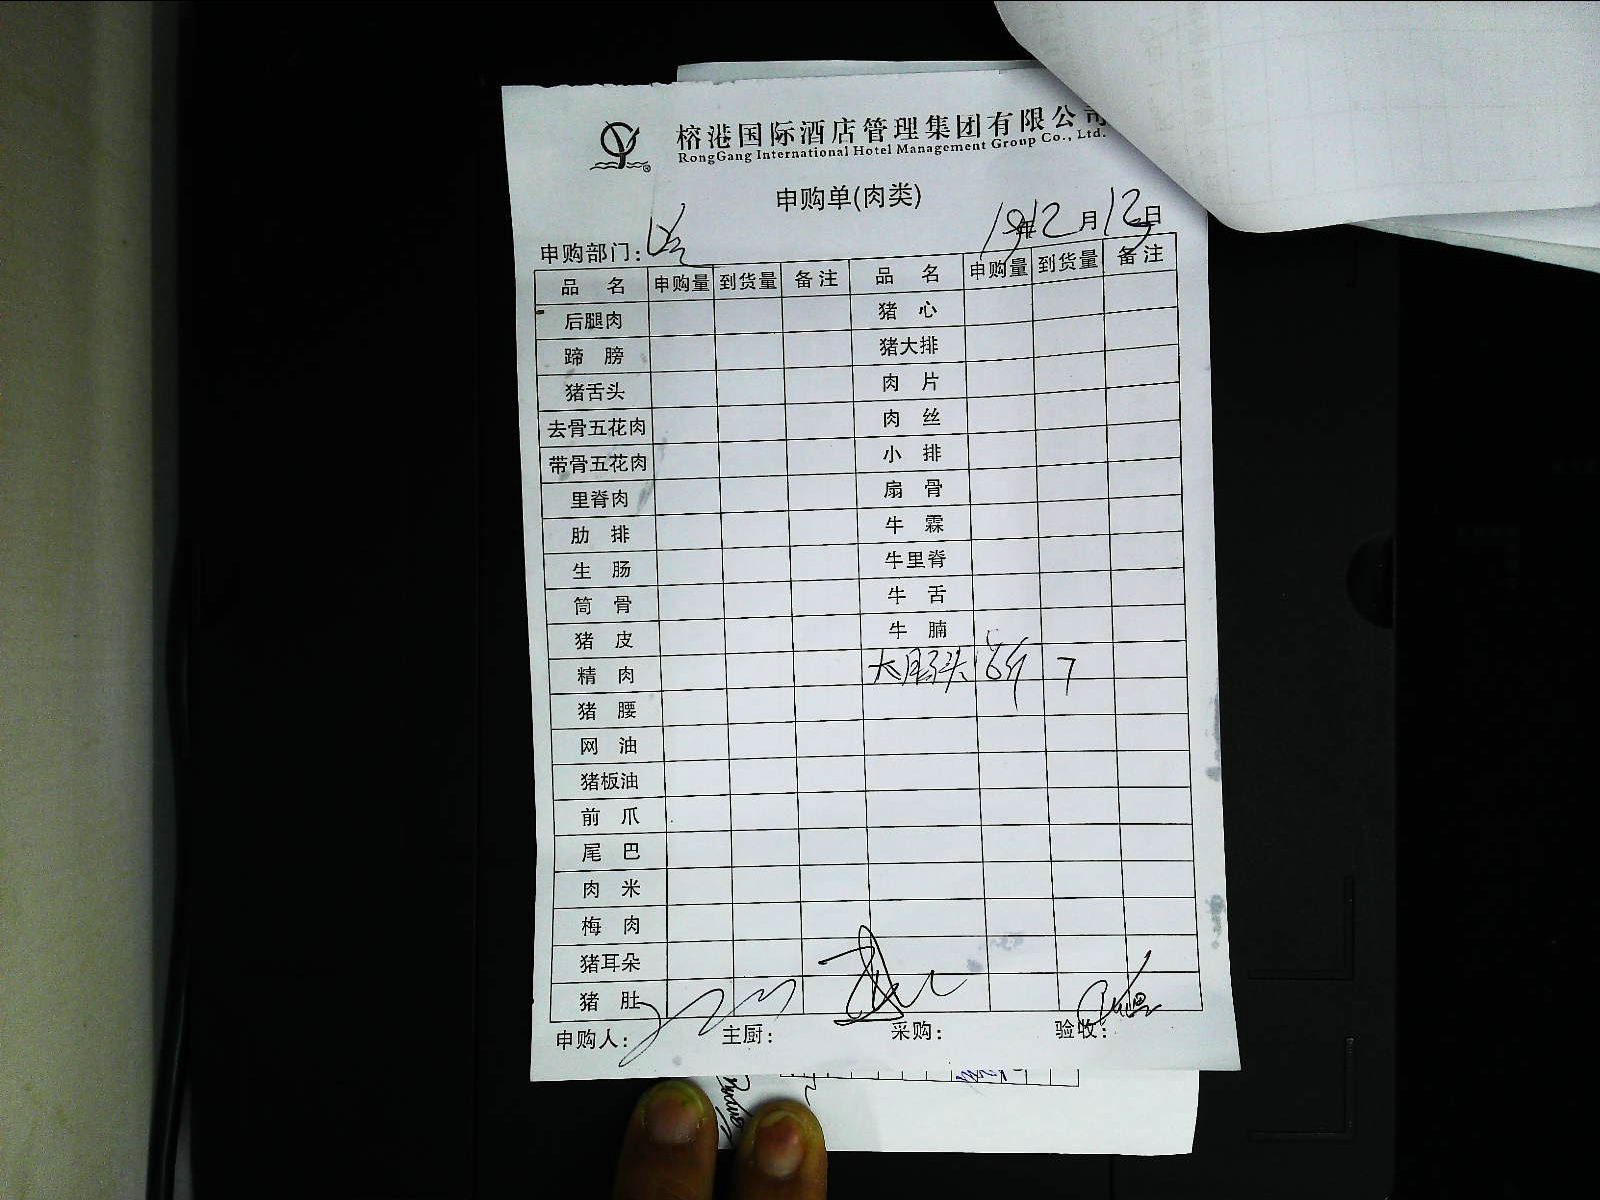 榕港国际酒店管理集团有限公司
RongGang International Hotel Management Group Co., Ltd.
申购单(肉类)
申购部门: 19年12月12日
品 名 申购量 到货量 备注 品 名 申购量 到货量 备注
后腿肉 猪 心
蹄 膀 猪大排
猪舌头 肉 片
去骨五花肉 肉 丝
带骨五花肉 小 排
里脊肉 扇 骨
肋 排 牛 霖
生 肠 牛里脊
筒 骨 牛 舌
猪 皮 牛 腩
精 肉 大肠头 6斤 7
猪 腰
网 油
猪板油
前 爪
尾 巴
肉 米
梅 肉
猪耳朵
猪 肚
申购人: 主厨: 采购: 验收: